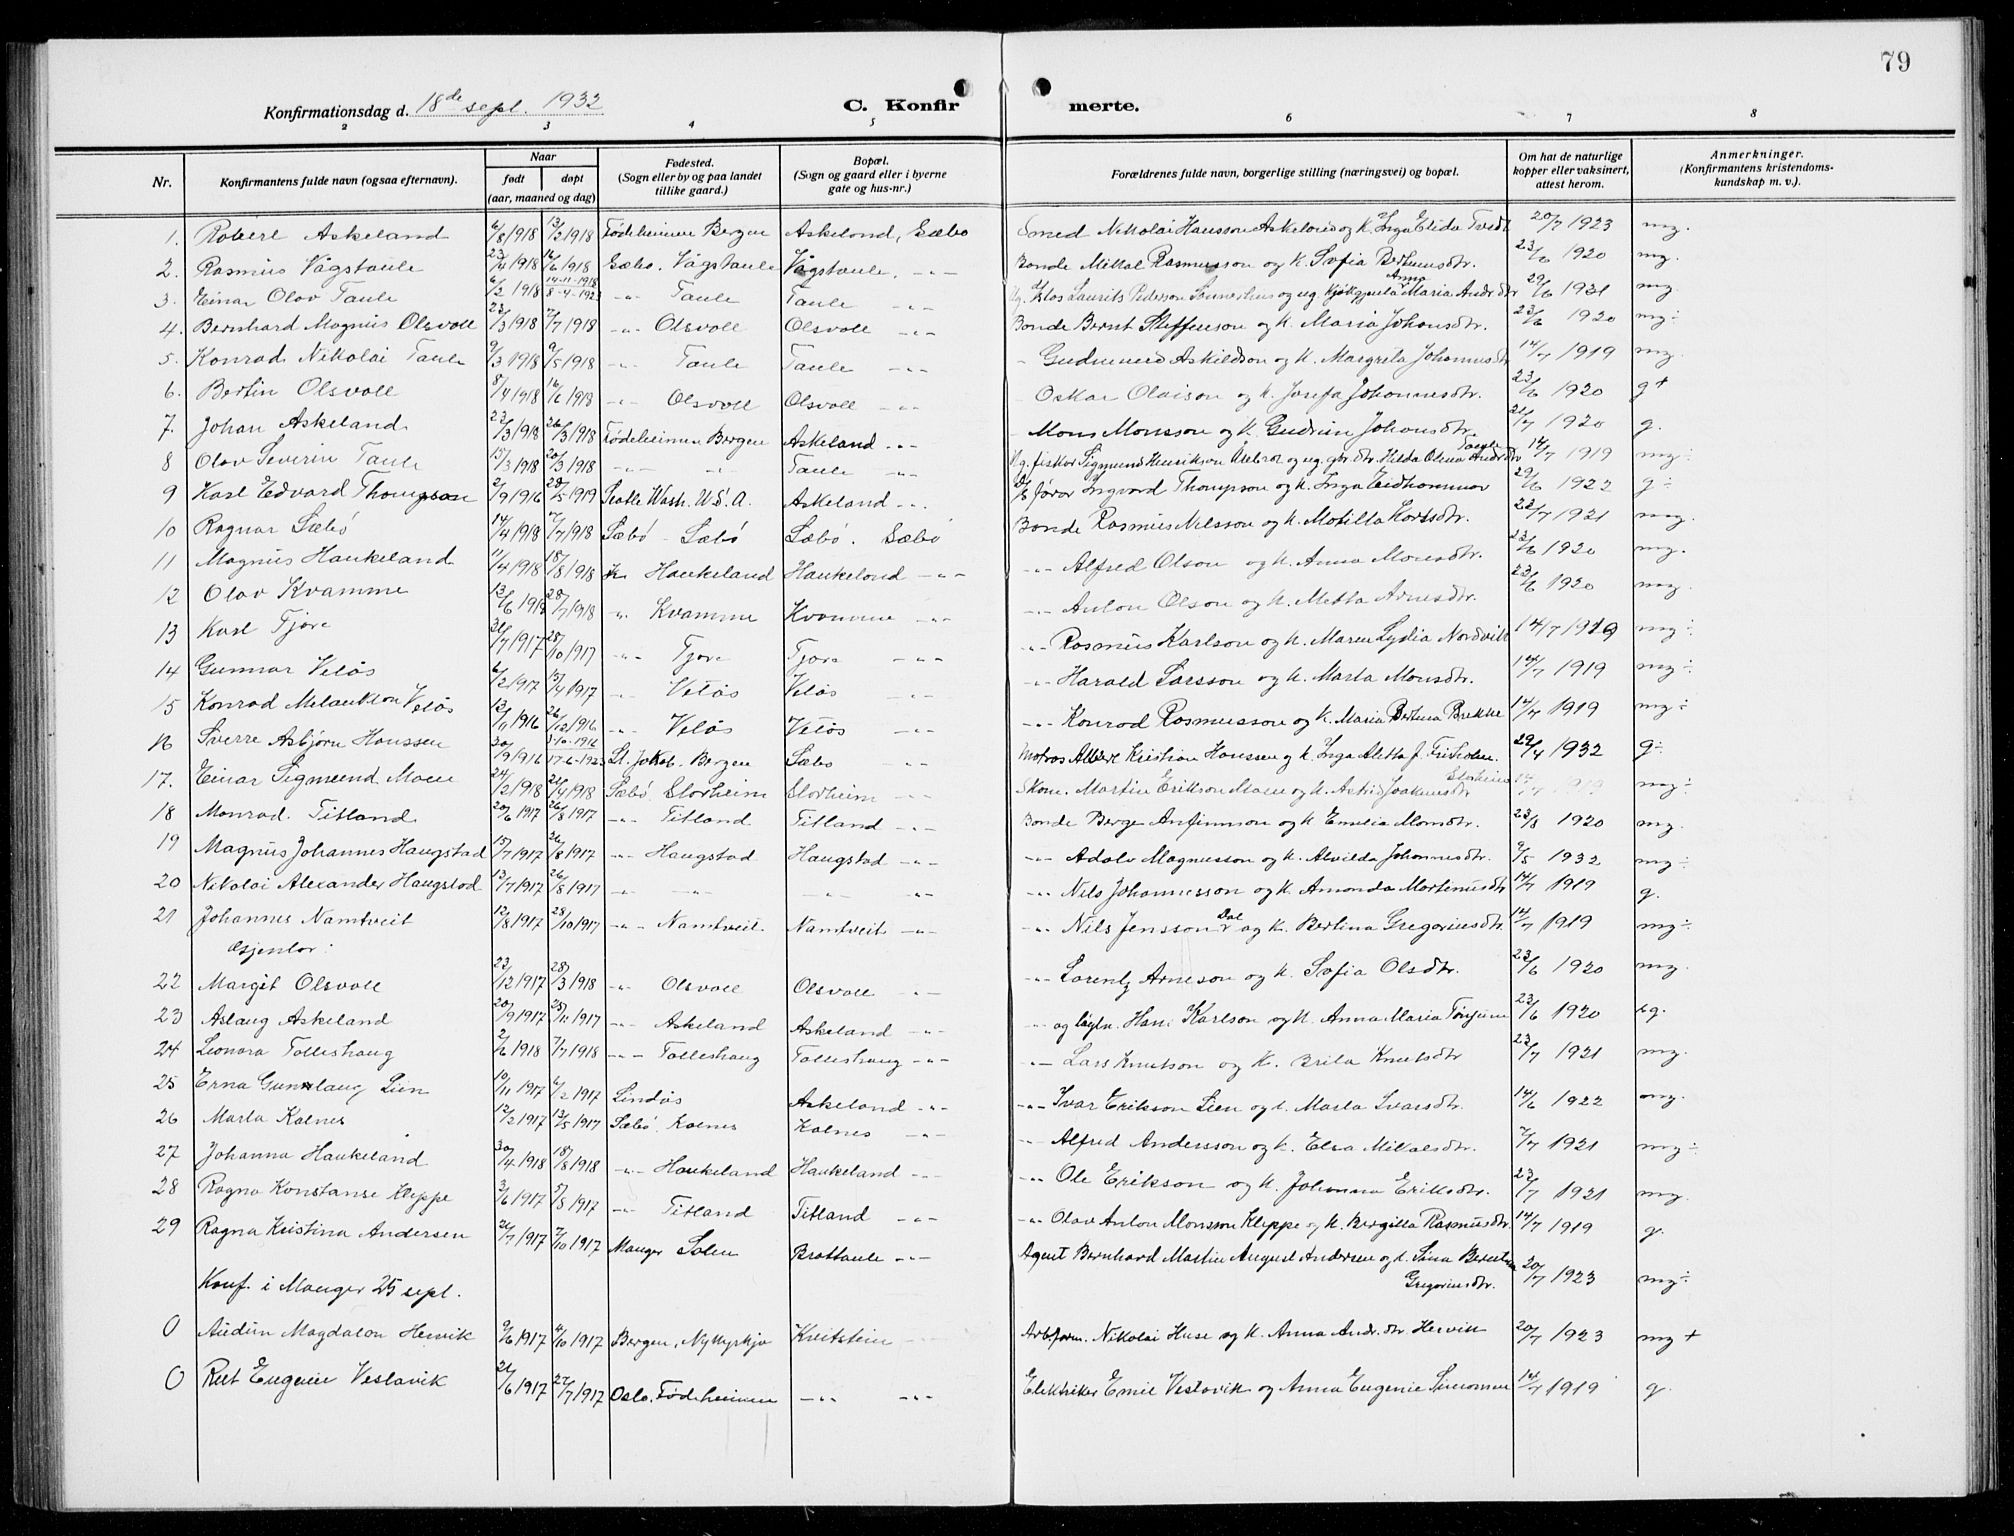 79
Konfirmationsdag d. 18de sept. 1932 C. Konfirmerte.
2 3 4 5 6 7 8
Nr. Konfirmantens fulde navn (ogsaa efternavn). Naar født døpt (aar, maaned og dag) Fødested. (Sogn eller by og paa landet tillike gaard.) Bopæl. (Sogn og gaard eller i byerne gate og hus-nr.) Forældrenes fulde navn, borgerlige stilling (næringsvei) og bopæl. Om hat de naturlige kopper eller vaksinert, attest herom. Anmerkninger. (Konfirmantens kristendomskundskap m. v.).
1. Robert Askeland 6/8 1918 13/2 1918 Fødeheimen Bergen Askeland, Sæbø Smed Nikolai Hansson Askeland og k. Inga Elida Tvedt 20/7 1923 mg.
2. Rasmus Vågstaule 23/4 1918 16/6 1918 Sæbø. Vågstaule Vågstaule, -"- Bonde Mikal Rasmusson og k. Sofia Bertinusdtr. 23/6 1920 mg.
3. Einar Olav Taule 6/2 1918 14-11-1918 8-4-1923 -"- Taule Taule -"- Ug. Klos Laurits Pederson Sonnerhus og ug. Anna Maria Andrdtr 29/6 1921 mg
4. Bernhard Magnus Olsvoll 23/3 1918 7/7 1918 -"- Olsvoll Olsvoll -"- Bonde Bernt Steffenson og k. Maria Johansdtr. 23/6 1920 mg÷
5. Konrad Nikolai Taule 9/3 1918 9/5 1918 -"- Taule Taule -"- - Gudmund Askildson og k. Margreta Johannesdtr 14/7 1919 mg.
6. Bertin Olsvoll 8/4 1918 16/6 1918 -"- Olsvoll Olsvoll -"- - Oskar Olaison og k. Josefa Johannesdtr. 23/6 1920 g+
7. Johan Askeland 23/3 1918 26/3 1918 Fødeheimen Bergen Askeland -"- - Mons Monsson og k. Gudrun Johansdtr. 21/7 1920 g.
8 Olav Severin Taule 15/3 1918 20/3 1918 -"- -"- Taule -"- Ug. fisker Sigmund Henrikson og ug. gdr.dtr. Hilda Olina Andrdtr Taule 14/7 1919 mg÷
9 Karl Edvard Thompson 2/9 1916 28/5 1919 Seatle Wash. U.S.A. Askeland -"- Ingvard Thompson og k. Inga Eidhammer 29/6 1922 g÷
10 Ragnar Sæbø 14/4 1918 7/7 1918 Sæbø - Sæbø Sæbø. Sæbø Bonde Rasmus Nilsson og k. Matilla Larsdtr. 22/7 1921 mg.
11 Magnus Haukeland 11/4 1918 18/8 1918 Haukeland Haukeland -"- -"- Alfred Olson og k. Anna Monsdtr. 23/6 1920 mg.
12 Olav Kvamme 13/6 1918 28/7 1918 " Kvamme Kvamme -"- -"- Anton Olson og k. Metta Arnesdtr. 23/6 1920 mg.
13 Karl Tjore 31/7 1917 28/10 1917 -"- Tjore Tjore -"- -"- Rasmus Karlson og k. Maren Lydia Nordvik 14/7 1919 mg÷
14 Gunnar Veløs 6/2 1917 15/4 1917 -"- Veløs Veløs -"- -"- Harald Larsson og k. Marta Monsdtr. 14/7 1919 mg÷
15 Konrad Melankton Veløs 13/11 1916 26/12 1916 -"- Veløs Veløs -"- -"- Konrad Rasmusson og k. Maria Bertina Brekke 14/7 1919 mg÷
16 Sverre Asbjørn Hanssen 20/9 1916 3-10-1916 17-6-1923 St. Jakob. Bergen Sæbø -"- Matros Albert Kristian Hanssen og k. Inga Aletta f. 29/4 1932 g÷
17. Einar Sigmund Moen 24/2 1918 21/4 1918 Sæbø Storheim Storheim -"- Skom. Martin Erikson Moen og k. Astrid Joakimsdtr Storheim 14/7 1919 mg÷
18 Monrad Titland 20/6 1917 26/8 1917 -"- Titland Titland -"- Bonde Berge Anfinnson og k Emelia Monsdtr. 23/8 1920 mg.
19 Magnus Johannes Haugstad 15/7 1917 26/8 1917 -"- Haugstad Haugstad -"- -"- Adolv Magnusson og k. Alvilda Johannesdtr. 9/5 1932 mg÷
20 Nikolai Alexander Haugstad 13/7 1917 26/8 1917 -"- -"- -"- -"- -"- Nils Johannesson og k. Amanda Martinusdtr 14/7 1919 g.
21 Johannes Namtveit 12/8 1917 28/10 1917 -"- Namtveit Namtveit -"- -"- Nils Jensson Dal og k. Bertina Gregoriusdtr. 14/7 1919 mg÷
Gjentor:
22 Margit Olsvoll 23/12 1917 28/3 1918 -"- Olsvoll Olsvoll -"- -"- Lorentz Arneson og k. Sofia Olsdtr. 23/6 1920 mg.
23 Aslaug Askeland 20/9 1917 25/11 1917 -"- Askeland Askeland -"- -"- og Hans Karlson og k. Anna Maria Tønjum 23/6 1920 tg.
24 Leonora Tolleshaug 2/6 1918 7/7 1918 -"- Tolleshaug Tolleshaug -"- -"- Lars Knutson og k. Brita Knutsdtr 23/7 1921 mg.
25 Erna Gunlaug Lien 10/11 1917 6/2 1917 Lindås Askeland -"- -"- Ivar Erikson Lien og k. Marta Ivarsdtr. 14/6 1922 mg.
26 Marta Kolnes 12/2 1917 13/5 1917 Sæbø. Kolnes Kolnes -"- -"- Alfred Andersson og k. Elsa Mikalsdtr. 7/7 1921 mg÷
27 Johanna Haukeland 30/4 1918 18/8 1918 -"- Haukeland Haukeland -"- -"- Ole Erikson og k. Johanna Eriksdtr. 23/7 1921 mg.
28 Ragna Konstanse Kleppe 3/6 1917 5/8 1917 -"- Titland Titland -"- -"- Olav Anton Monsson Kleppe og k. Bergitta Rasmusdtr. 14/7 1919 g.
29 Ragna Kristina Andersen 26/7 1917 7/10 1917 Manger Solen Brattaule -"- Agent Bernhard Martin August Andersen og k. Lina Berntina Gregoriusdtr. 20/7 1923 mg÷
Konf. i Manger 25 sept.
0 Audun Magdalon Hervik 9/6 1917 4/10 1917 Bergen, Nykyrkja Kvitstein -"- Arbform. Nikolai Huse og k. Anna Andr.dtr Hervik 20/7 1923 mg +
0 Rut Eugenie Vestavik 21/6 1917 27/7 1917 Oslo. Fødeheimen -"- -"- Elektriker Emil Vestavik og Anna Eugenie Simonsen 14/7 1919 g.